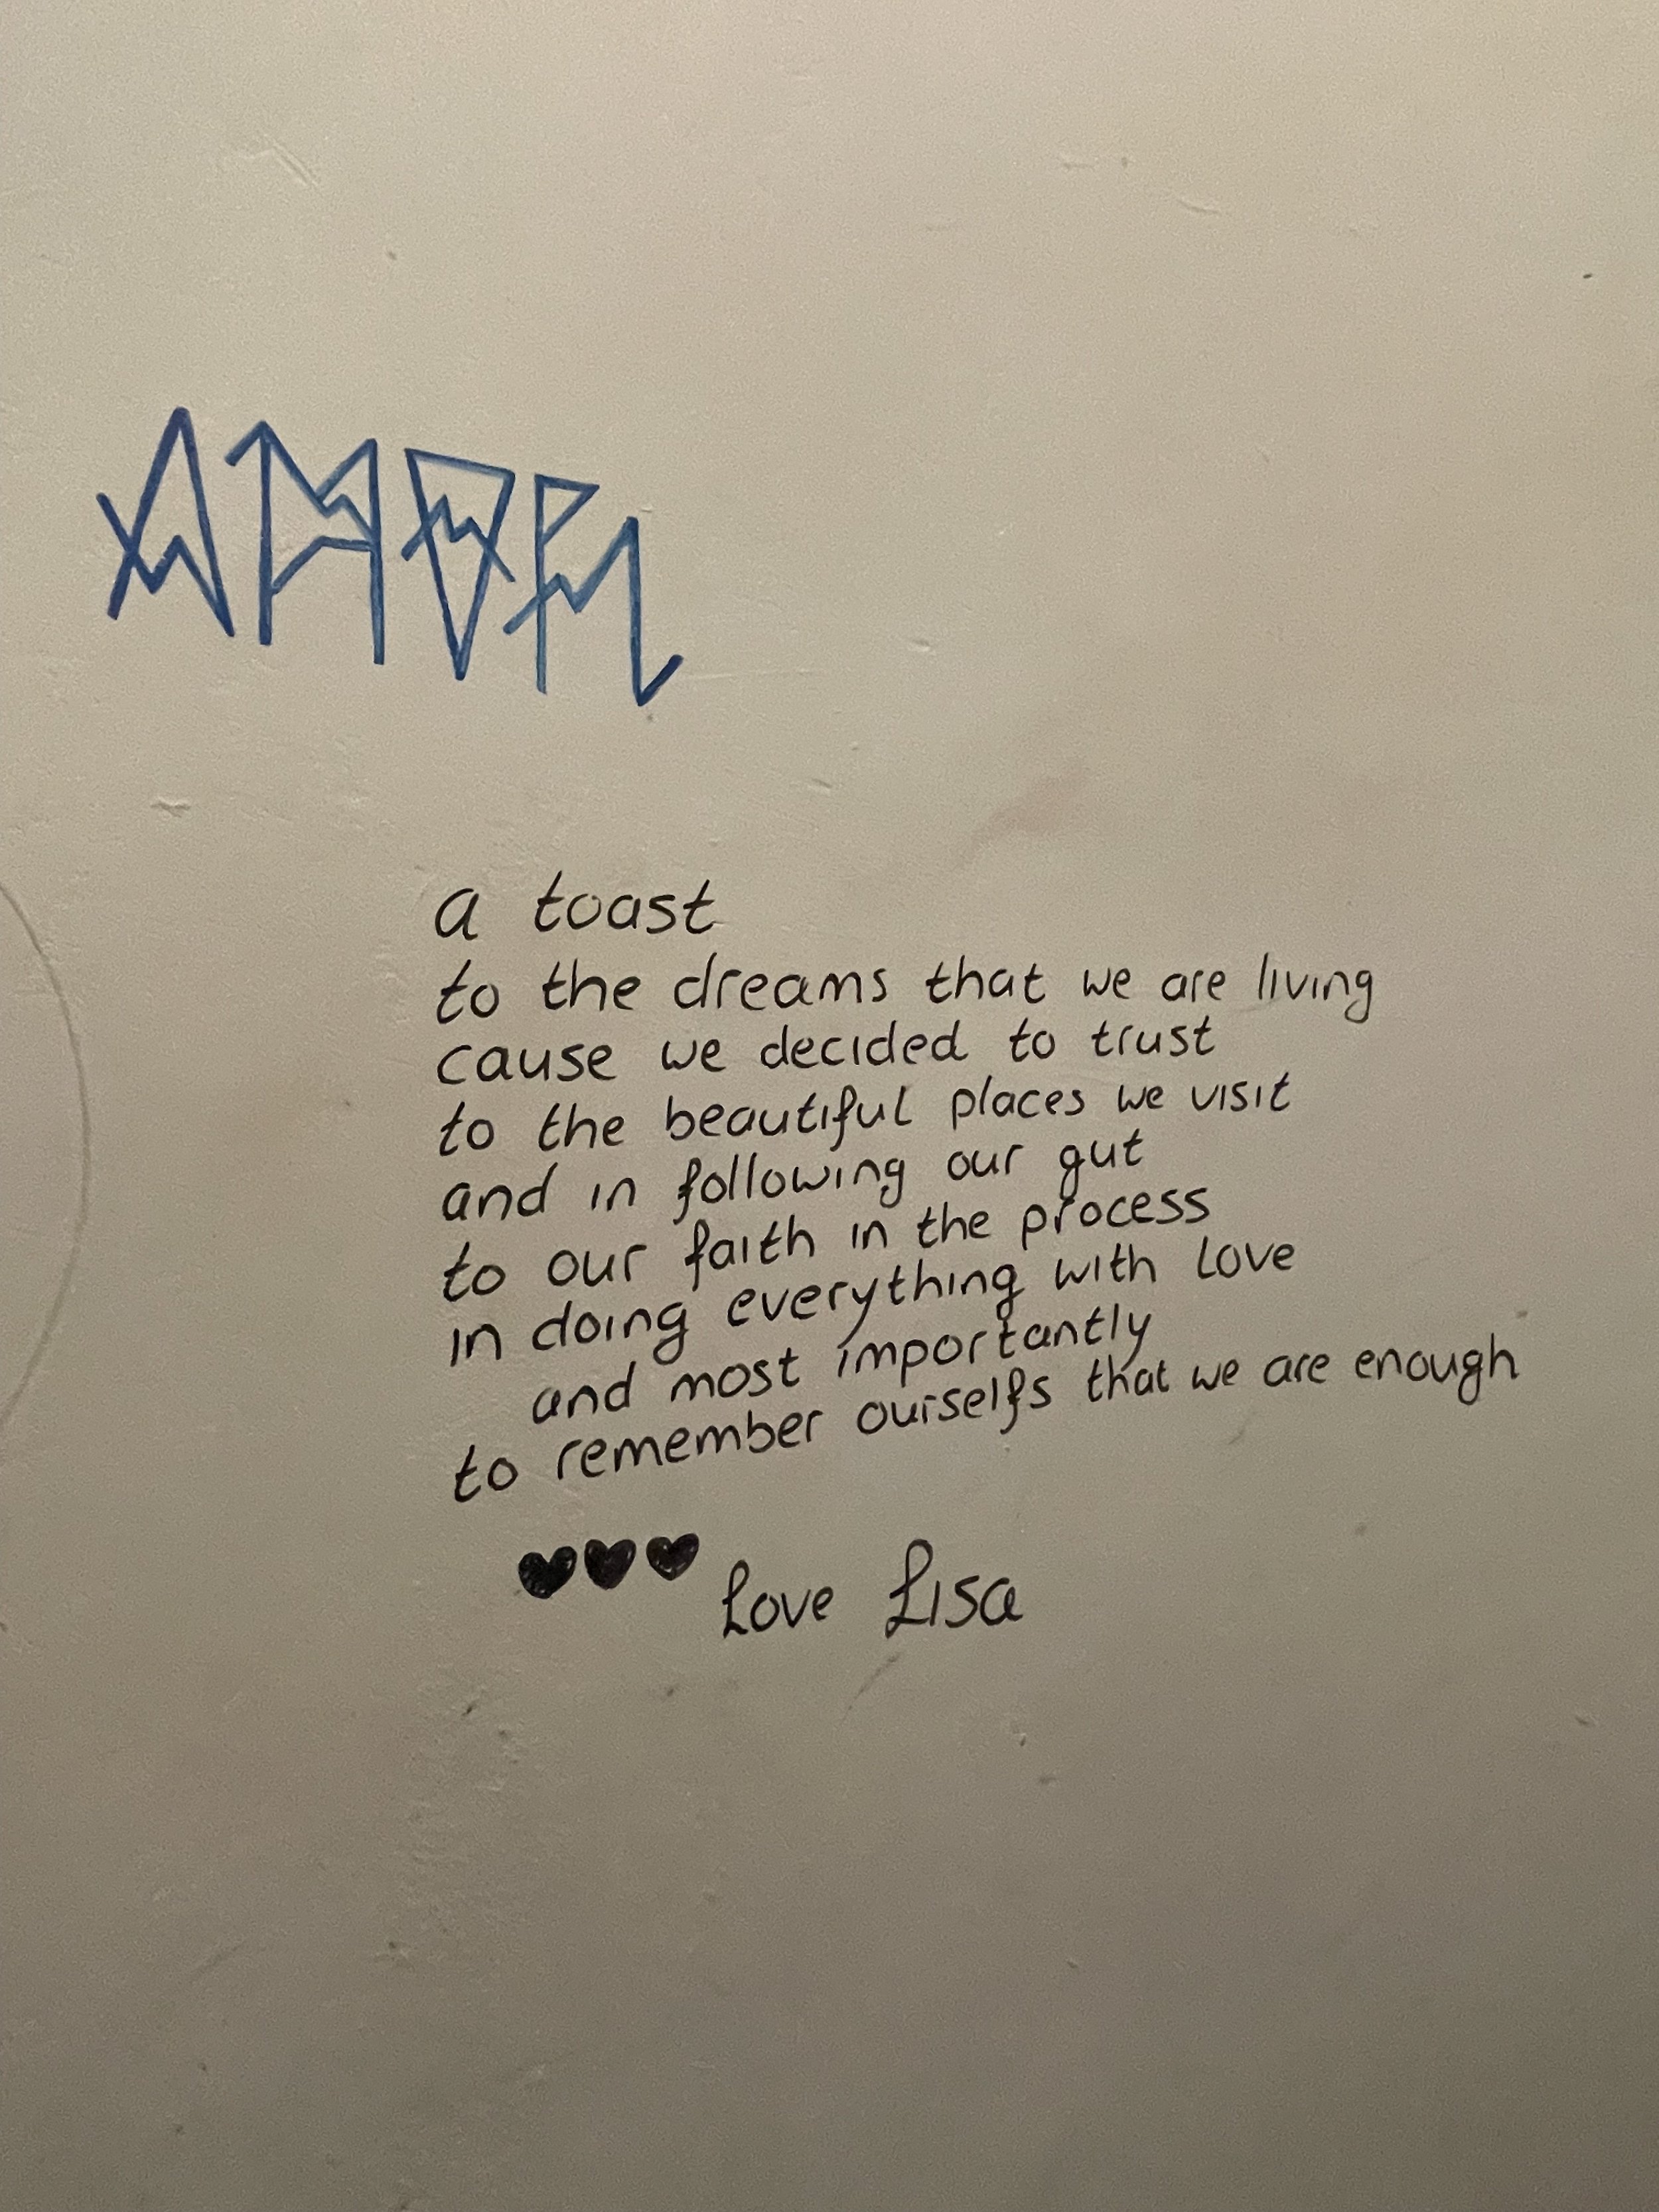 a toast
to the dreams that we are living
cause we decided to trust
to the beautiful places we visit
and in following our gut
to our faith in the process
in doing everything with love
and most importantly
to remember ourselfs that we are enough
♥♥♥ Love Lisa